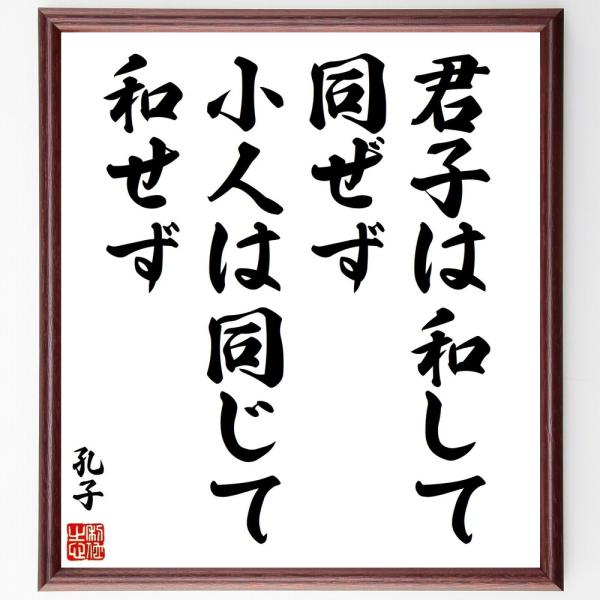 君子は和して
同ぜず
小人は同じて
和せず
孔子